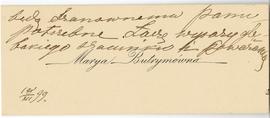 będą szanownemu panu
potrzebne. Łączę wyrazy głę-
bokiego szacunku i poważania
Marya Butrymówna
19 4/XII 99.